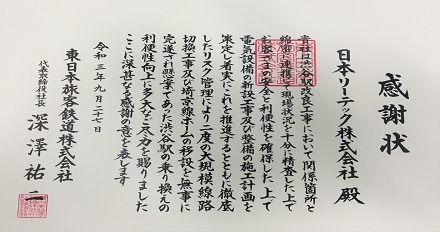 感謝状
日本リーテック株式会社 殿
貴社は渋谷駅改良工事において関係箇所と
綿密に連携し現場状況を十分に精査した上で
お客さまの安全と利便性を確保した上で
電気設備の新設工事及び整備の施工計画を
策定し着実にこれを推進するとともに徹底
したリスク管理により二度の大規模線路
切換工事及び埼京線ホームの移設を無事に
完遂され懸案であった渋谷駅の乗り換えの
利便性向上に多大なご尽力を賜りました
ここに深甚なる感謝の意を表します
令和三年九月二十七日
東日本旅客鉄道株式会社
代表取締役社長 深澤祐二